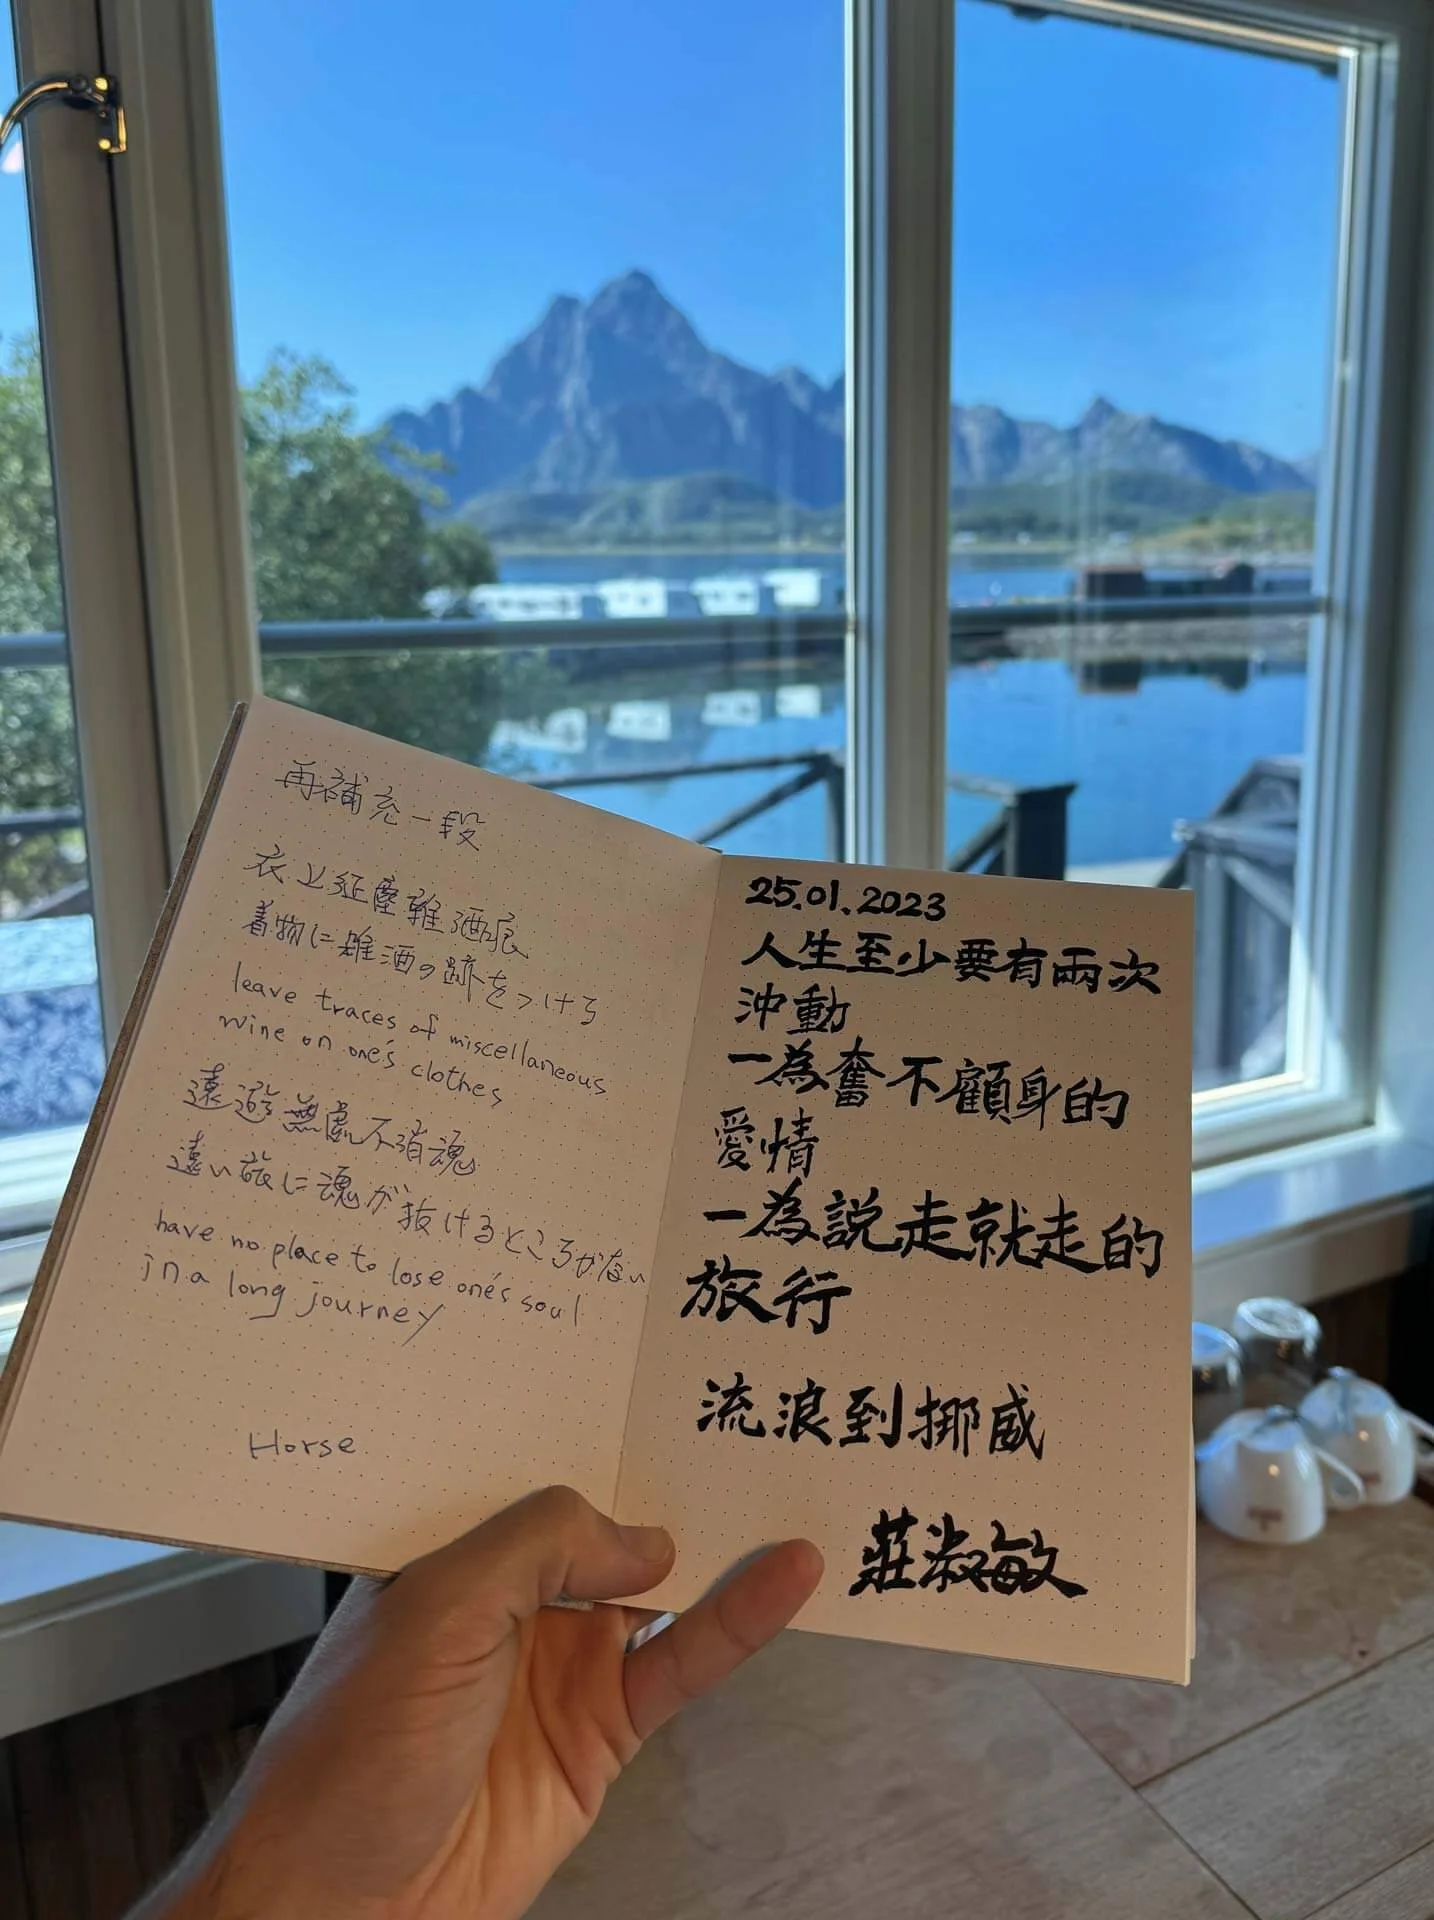 再補充一段
衣上征塵雜酒痕
着物に雑酒の跡をつける
leave traces of miscellaneous
wine on one's clothes
遠遊無處不消魂
遠い旅に魂が抜けるところがない
have no place to lose one's soul
in a long journey
Horse
25.01.2023
人生至少要有兩次
沖動
一為奮不顧身的
愛情
一為說走就走的
旅行
流浪到挪威
莊淑敏